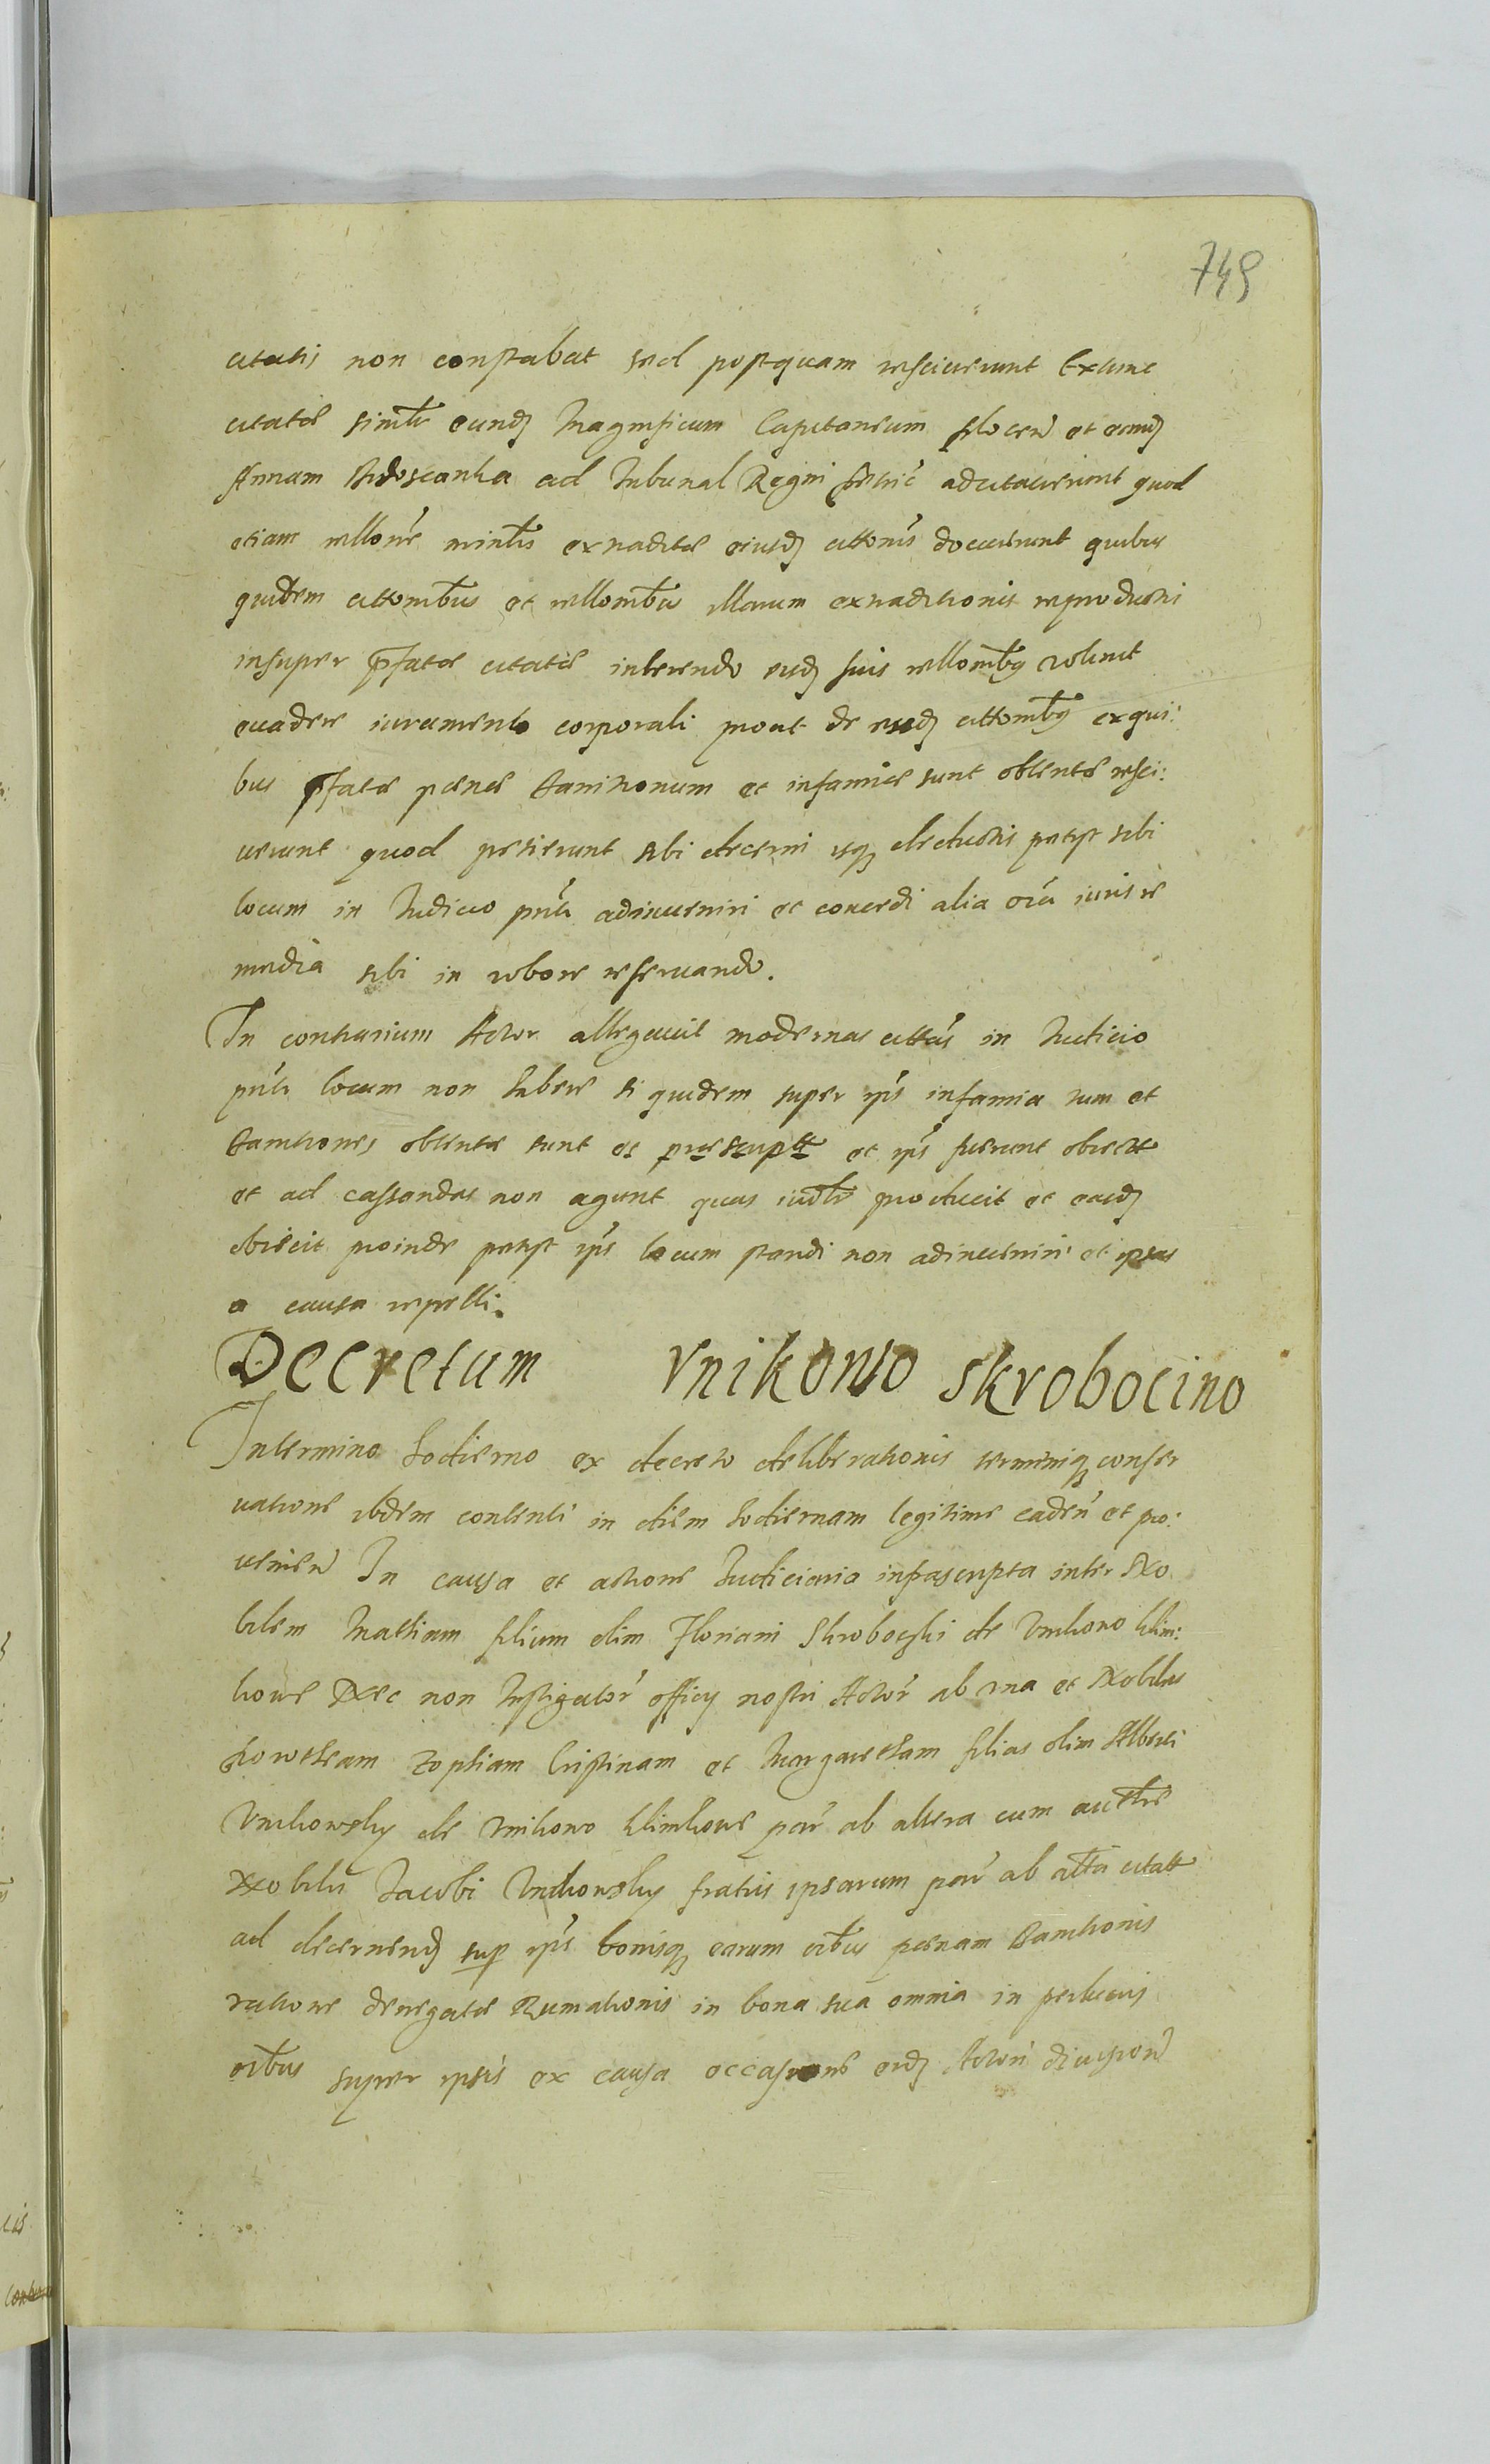 749
citatis non constabat sed postquam resciuerunt Extunc
citatae simlr eundę Magnificum Capitaneum plocen et eandę
Annam ad Tribunal Regni adcitauerunt quod
etiam rellone minlis extraditae eiusdę citton̄is docuerunt quibus
quidem cittonib̄us et rellonib̄us illarum extraditionis reproductis
insuper p̄fatae citatae inherendo eisdę suis rellonib̄ꝫ volunt
euadere iuramento corporali prout de eisdę cittonib̄ꝫ ex qui:
bus p̄fatae penae banitionum et infamiae sunt obtentae resci:
uerunt quod petierunt sibi decerni isqꝫ deductis petyt sibi
locum in Iudicio pn̄ti adinueniri et concedi alia oīa iuris re
media sibi in robore reseruando.
In contrarium Actor allegauit modernas cittās in Iudicio
pn̄ti locum non habere si quidem super ip̄is infamia tum et
banitiones obtentae sunt et praescriptae et ip̄is fuerunt obiectae
et ad cassandas non agunt quas iudlr producit et easdę
obiecit proinde petyt ip̄is locum standi non adinueniri et ipsas
a causa repelli.
Decretum Vnikowo Skrobocino
In termino hodierno ex decreto deliberationis terminiqꝫ conser
uatione ibidem contenti in diem hodiernam legitime caden̄ et pro:
uenien̄ In causa et actione Iudiciaria infrascripta inter No
bilem Mathiam filium olim Floriani Skroboczki de Vnikowo klim:
kowe Nec non Instigator̄ officij nostri Actor̄ ab vna et Nobiles
Dorotheam Zophiam Cristinam et Margaretham filias olim Alberti
Vnikowsky de Vnikowo klimkowe par̄ ab altera cum
Nobilis Jacobi Vnikowsky fratris ipsarum par̄ ab alt̄a citatt
ad decernendę sup ip̄is bonisqꝫ earum oib̄us penam Banitionis
ratione denegatae Rumationis in bona sua omnia in
oib̄us super ipsis ex causa occasione eidę Actori diuision̄